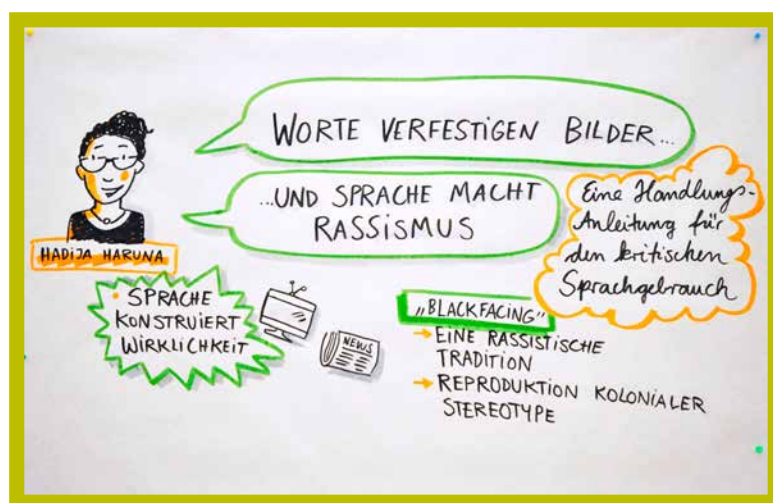 WORTE VERFESTIGEN BILDER...
...UND SPRACHE MACHT
RASSISMUS
Eine Handlungs-
Anleitung für
den kritischen
Sprachgebrauch
HADIJA HARUNA
• SPRACHE
KONSTRUIERT
WIRKLICHKEIT
NEWS
„BLACKFACING"
→ EINE RASSISTISCHE
TRADITION
→ REPRODUKTION KOLONIALER
STEREOTYPE